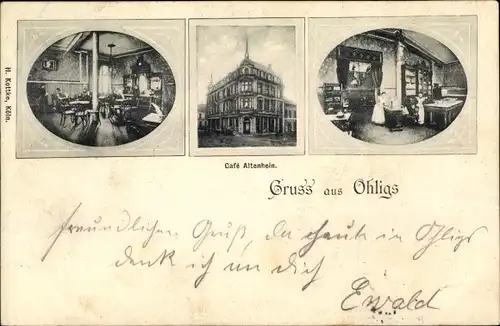 H. Kottke, Köln.
Café Altenhein.
Gruss aus Ohligs
freundlichen Gruß, da heute in Ohligs
denk ich an dich
Ewald